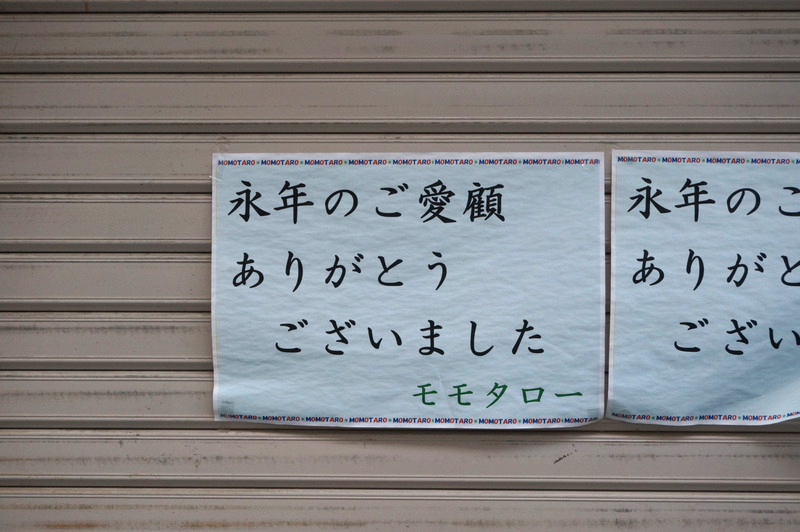 MOMOTARO MOMOTARO MOMOTARO MOMOTARO MOMOTARO MOMOTARO MOMOTARO MOMOTARO MOMOTARO
永年のご愛顧
ありがとう
ございました
モモタロー
MOMOTARO MOMOTARO MOMOTARO MOMOTARO MOMOTARO MOMOTARO MOMOTARO MOMOTARO MOMOTARO
MOMOTARO MOMOTARO MOMOTARO MOMOTARO
永年のご
ありがと
ござい
MOMOTARO MOMOTARO MOMOTARO MOMOTARO